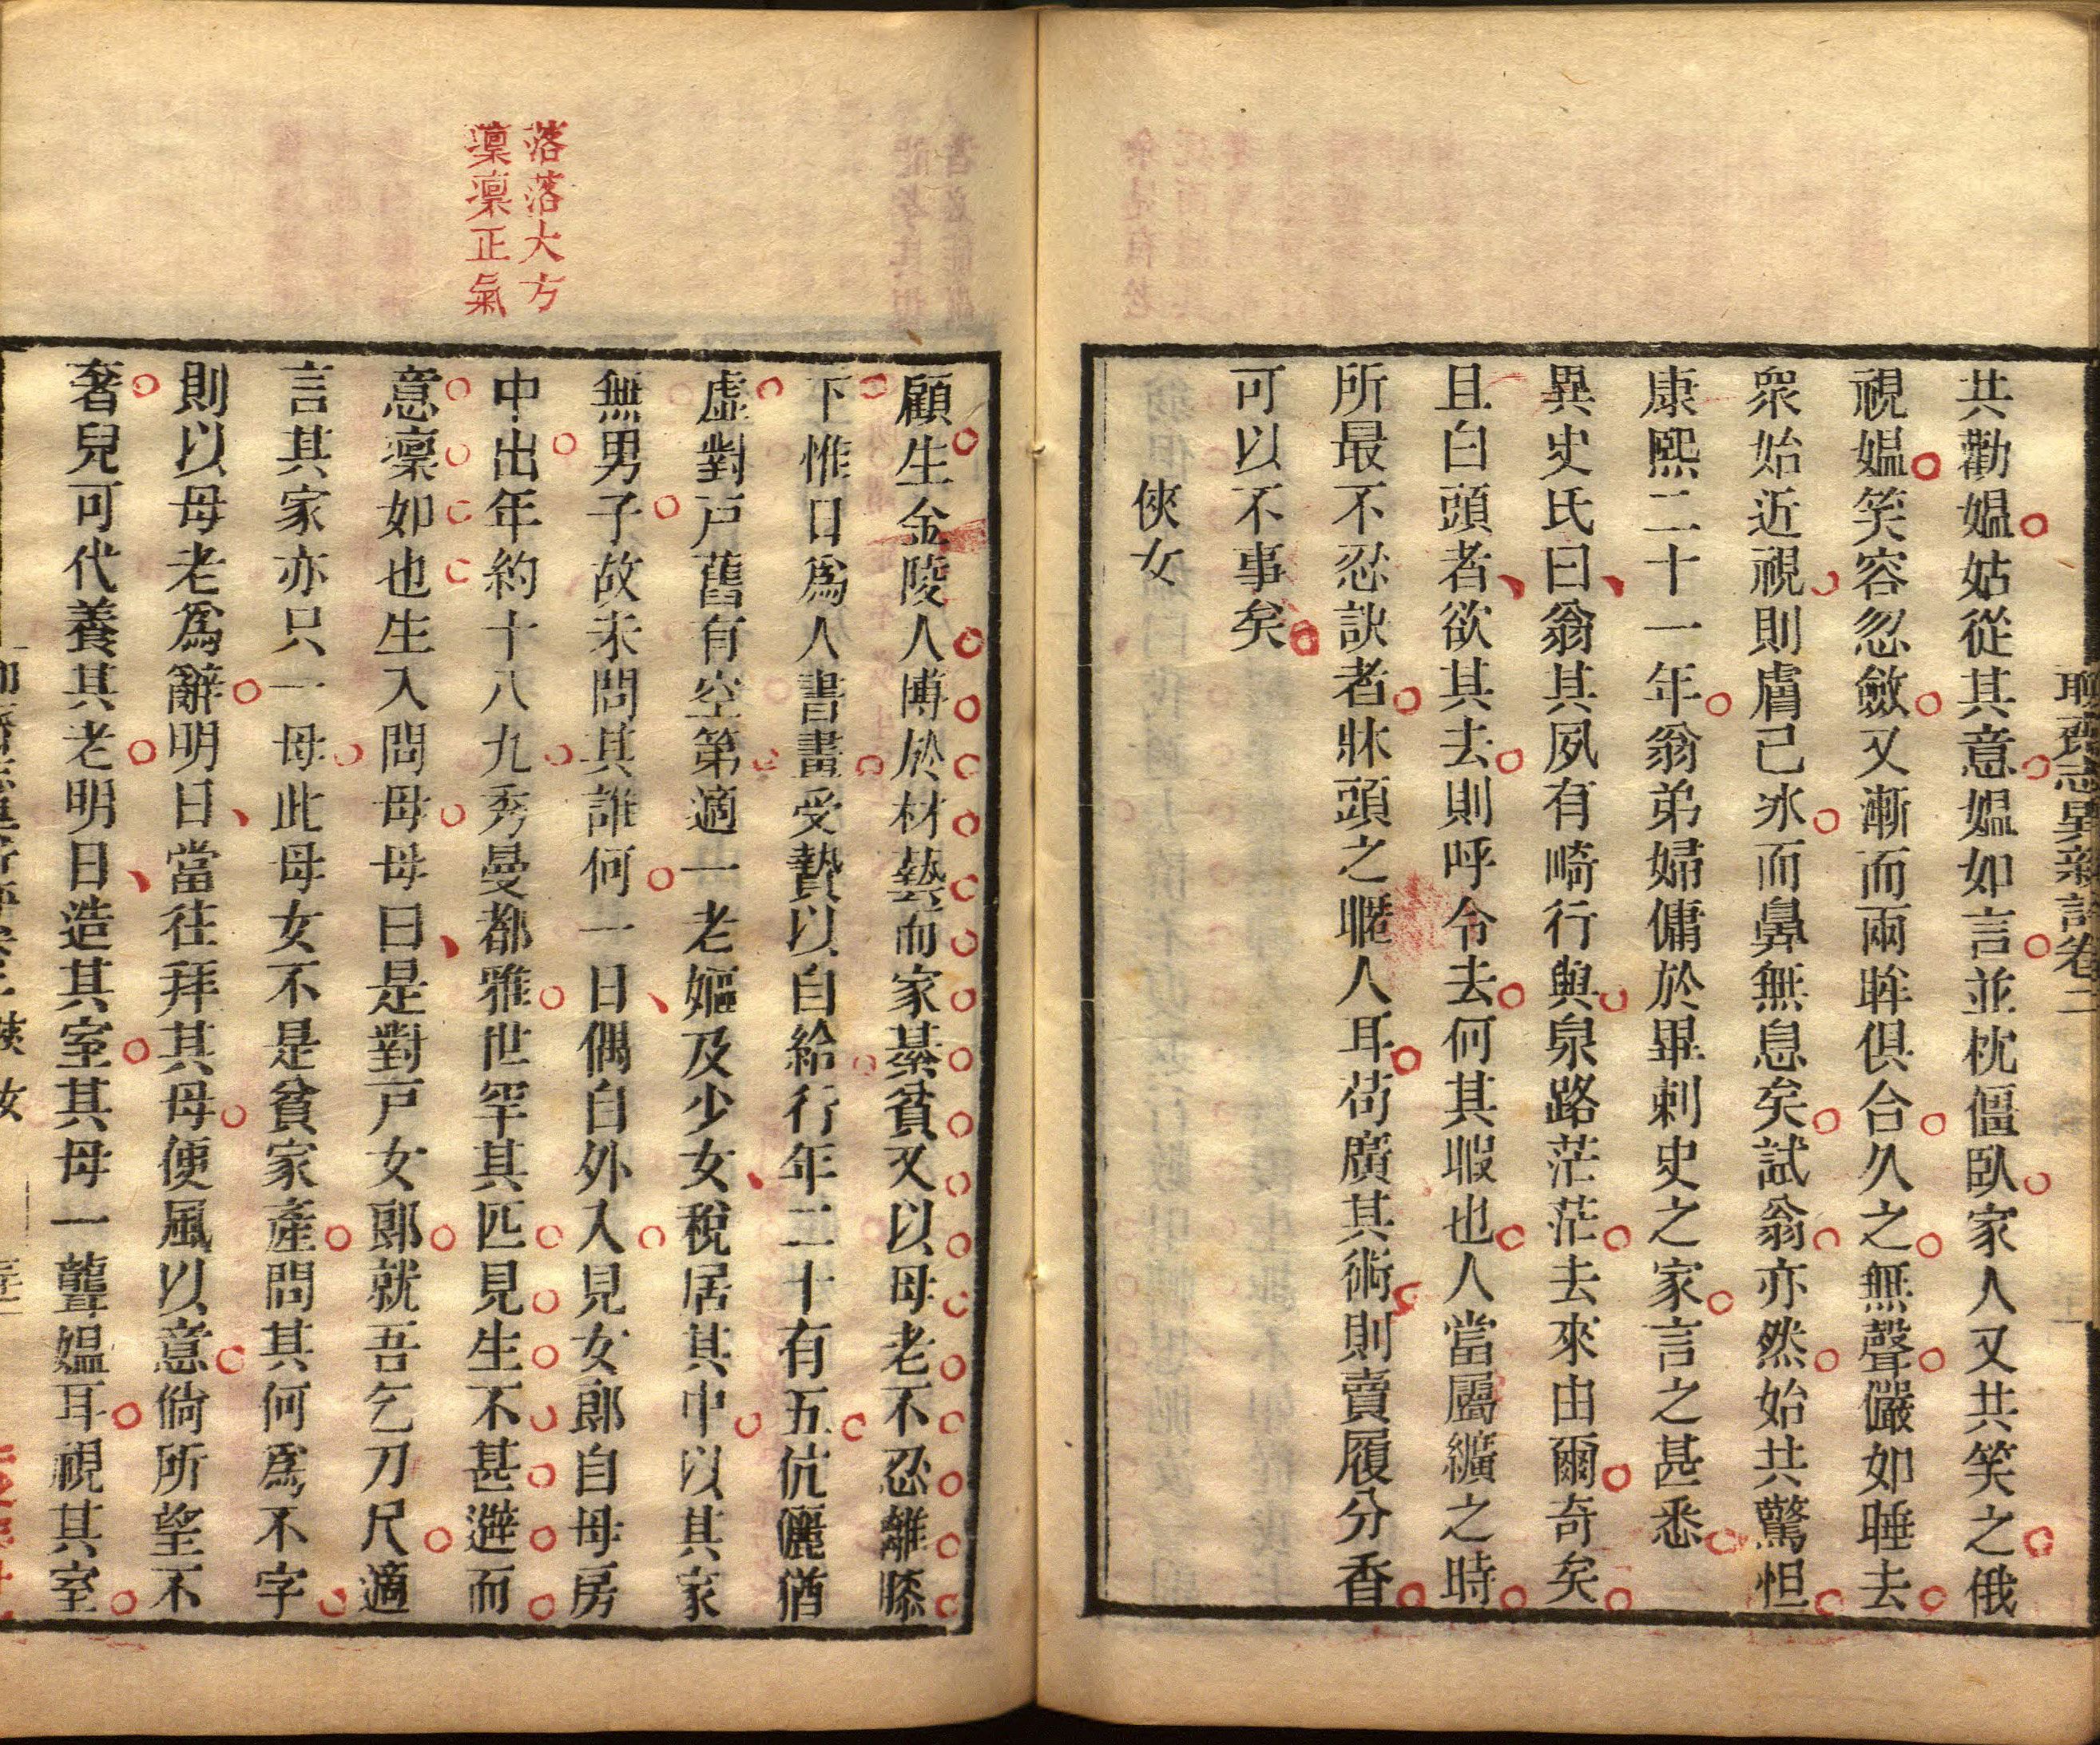 聊齋志異新評卷二
共勸媼姑從其意媼如言並枕僵臥家人又共笑之俄
視媼笑容忽斂又漸而兩眸俱合久之無聲儼如睡去
衆始近視則膚已冰而鼻無息矣試翁亦然始共驚怛
康熙二十一年翁弟婦傭於畢刺史之家言之甚悉
異史氏曰翁其夙有畸行與泉路茫茫去來由爾奇矣
且白頭者欲其去則呼令去何其暇也人當屬纊之時
所最不忍訣者牀頭之暱人耳苟廣其術則賣履分香
可以不事矣
俠女
落落大方
凜凜正氣
顧生金陵人博於材藝而家綦貧又以母老不忍離膝
下惟日爲人書畫受贄以自給行年二十有五伉儷猶
虛對戸舊有空第適一老嫗及少女稅居其中以其家
無男子故未問其誰何一日偶自外入見女郎自母房
中出年約十八九秀曼都雅世罕其匹見生不甚避而
意凜如也生入問母母曰是對戸女郎就吾乞刀尺適
言其家亦只一母此母女不是貧家產問其何爲不字
則以母老爲辭明日當往拜其母便風以意倘所望不
奢兒可代養其老明日造其室其母一聾媼耳視其室